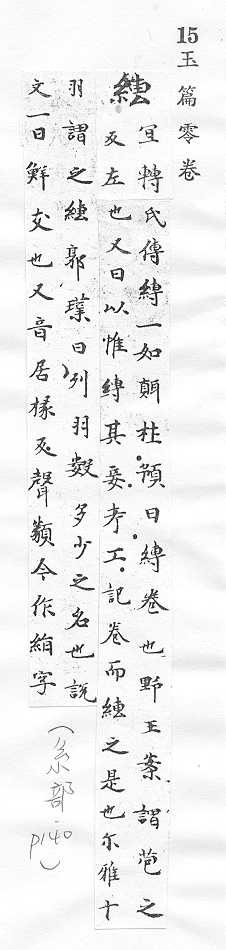 15玉篇零卷
縳
亙轉氏傳縛一如 杜預曰縛卷也野王案謂苞之
反左也又曰以惟縛其妾考工記卷而縳之是也尒雅十
羽謂之縳郭璞曰列羽數多少之名也說
文一曰鮮支也又音居椽反聲類今作絹字
(糸部.p140)